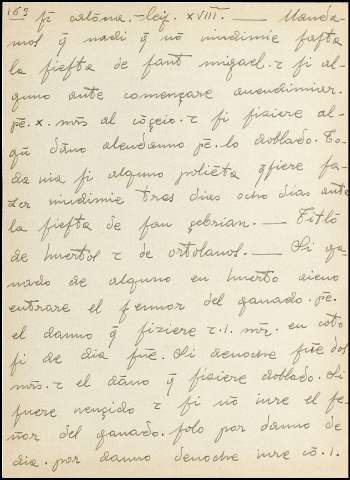 163 fi calōna. — leij. XVIII. — Manda-
mos q̄ nadi q̄ nō uindimie fasta
la fiesta de sant miguel. τ si al-
guno ante començare auendimiar.
pē. x. mr̄s al cōçeio. τ si fiziere al-
gū dāno alendanno pē. lo doblado. To-
da uia si alguno qsiere fa-
zer uindimie tres dias ocho dias ante
la fiesta de san çebrian. — Titlō
de huertos τ de ortolanos. — Si ga-
nado de alguno en huerto aieno
entrare el sennor del ganado. pē.
el danno q̄ fiziere τ .I. mr̄. en coto
si de dia fūe. Si denoche fūe dos
mr̄s. τ el dāno q̄ fiziere doblado. Si
fuere uençido τ si nō iure el se-
ñor del ganado. solo por danno de
dia. por danno denoche iure cō. I.